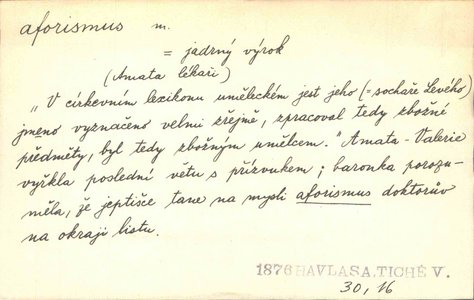 aforismus m.
= jadrný výrok
(Amata lékaři)
„V církevním lexikonu uměleckém jest jeho (= sochaře Levého)
jméno vyznačeno velmi zřejmě, zpracoval tedy zbožné
předměty, byl tedy zbožným umělcem." Amata-Valerie
vyřkla poslední větu s přízvukem; baronka porozu-
měla, že jeptišce tane na mysli aforismus doktorův
na okraji listu.
1876 HAVLASA, TICHÉ V.
30, 16